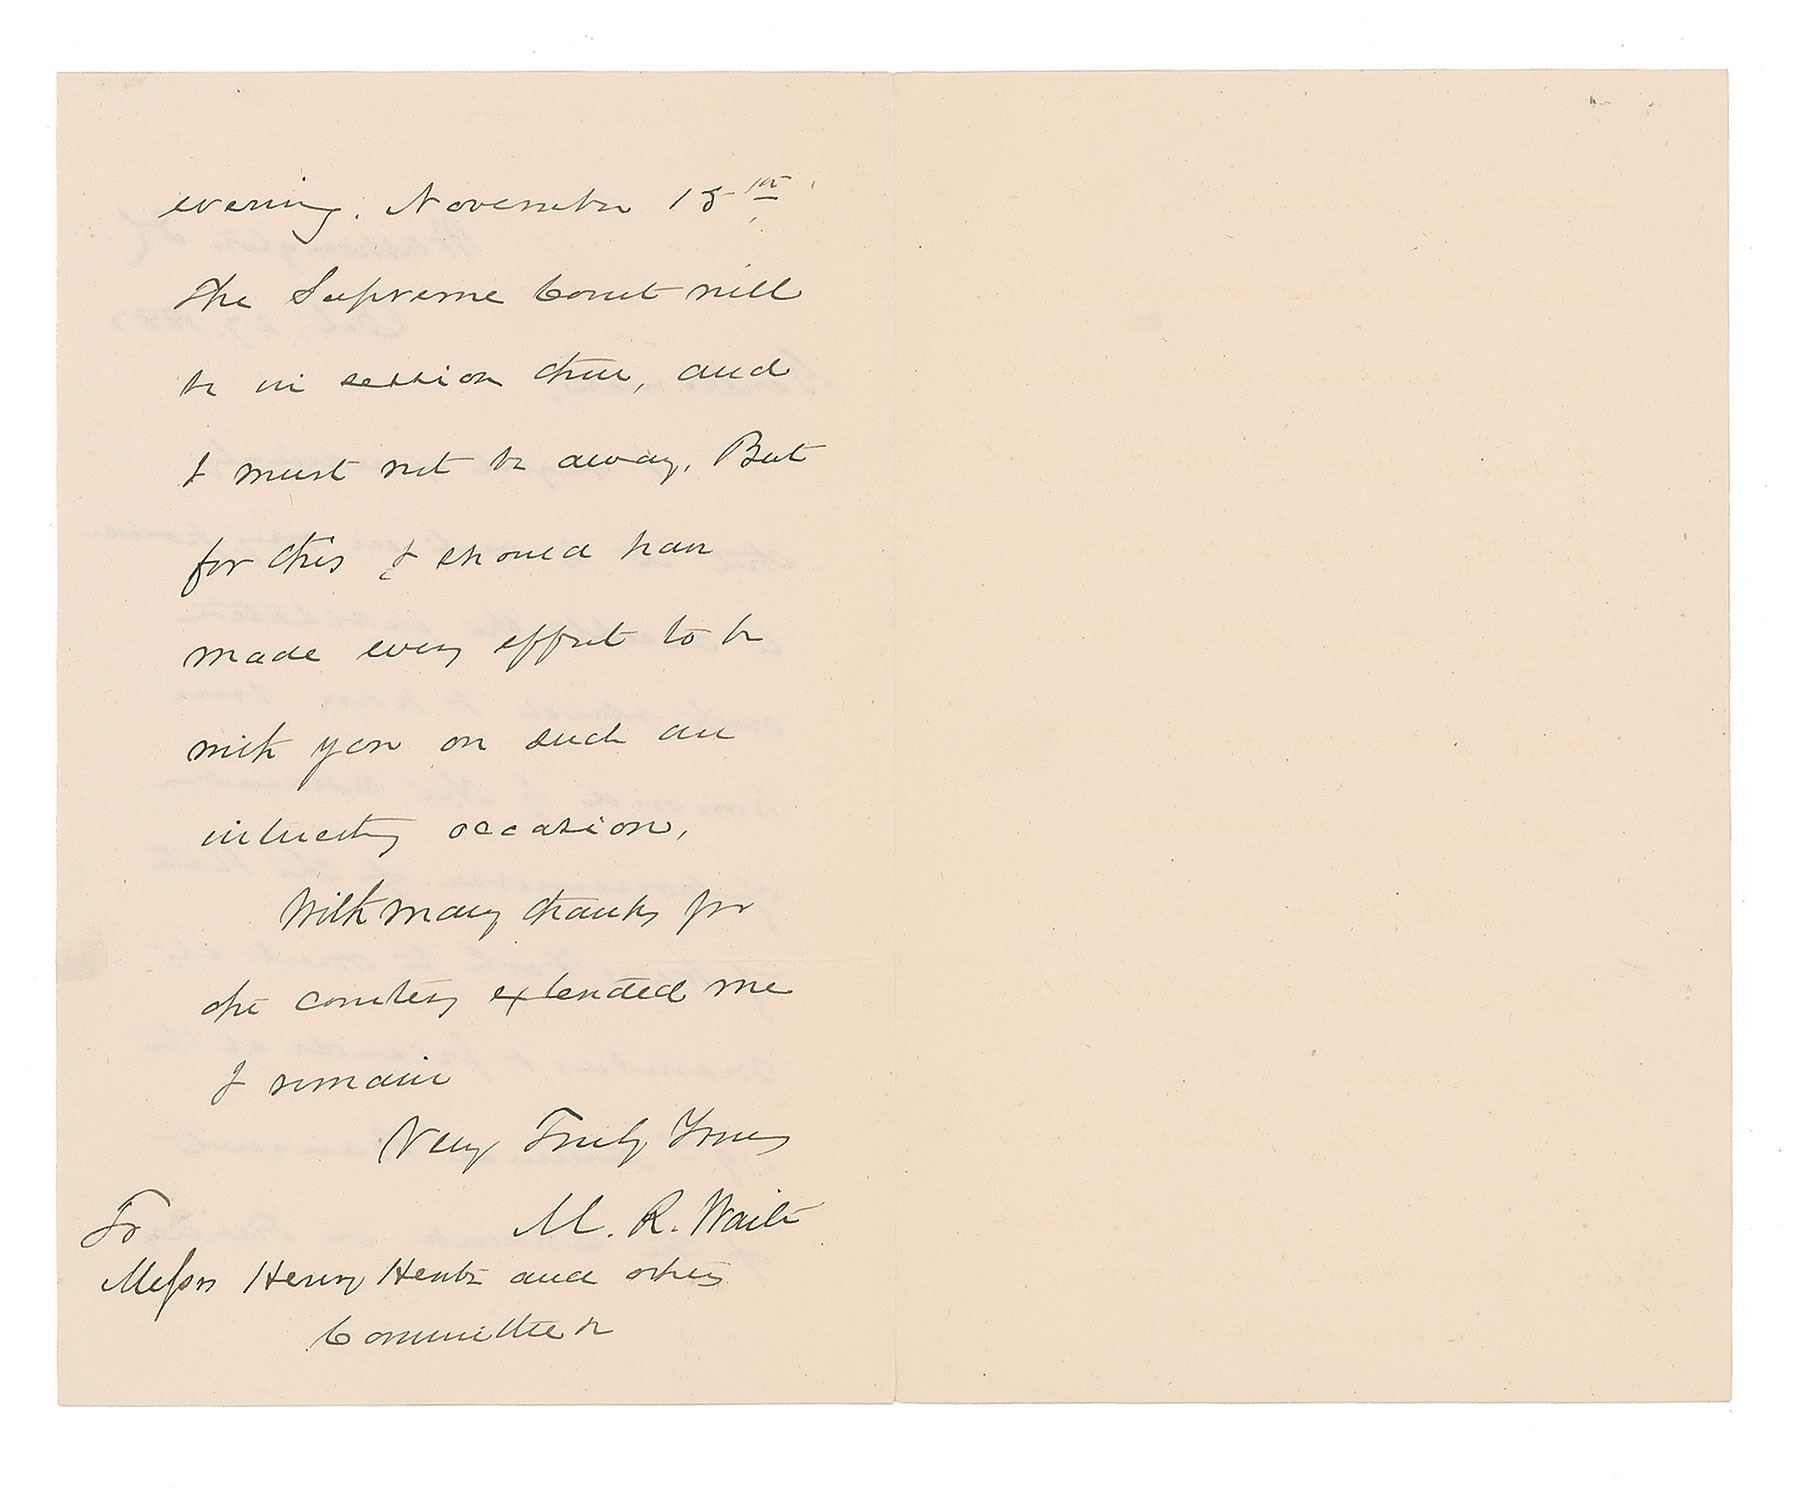 evening. November 15th
The Supreme Court will
be in session then, and
I must not be away. But
for this I should have
made every effort to be
with you on such an
interesting occasion,
With many thanks for
the courtesy extended me
I remain
Very Truly Yours
M. R. Waite
To
Messrs Henry Hentz and others
Committee &c